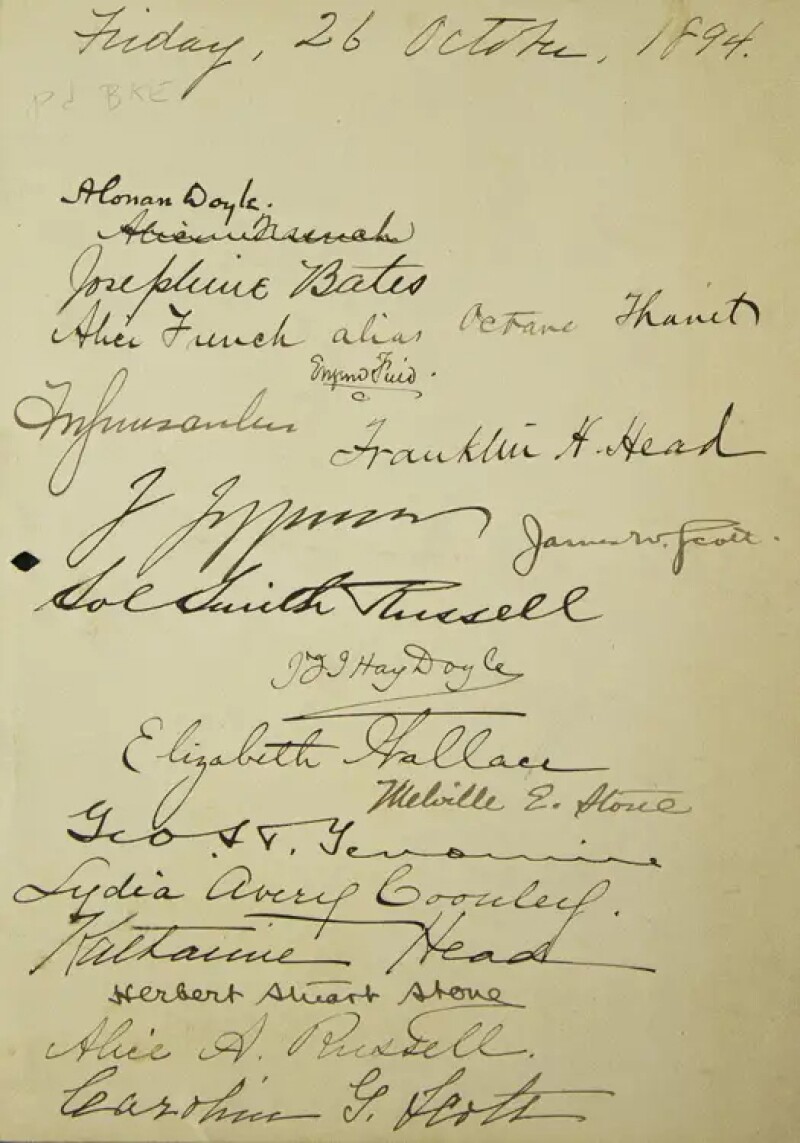 Friday, 26 October, 1894.
Pd BKE
A Conan Doyle.
Josephine Bates
Alice French alias Octave Thanet
Eugene Field.
Franklin H. Head
James W. Scott.
Sol Smith Russell
J F I Hay Doyle
Elizabeth Wallace
Melville E. Stone
Geo. I. T.
Lydia Avery Coonley.
Katharine Head
Herbert Stuart Stone
Alice A. Russell.
Caroline G. Scott